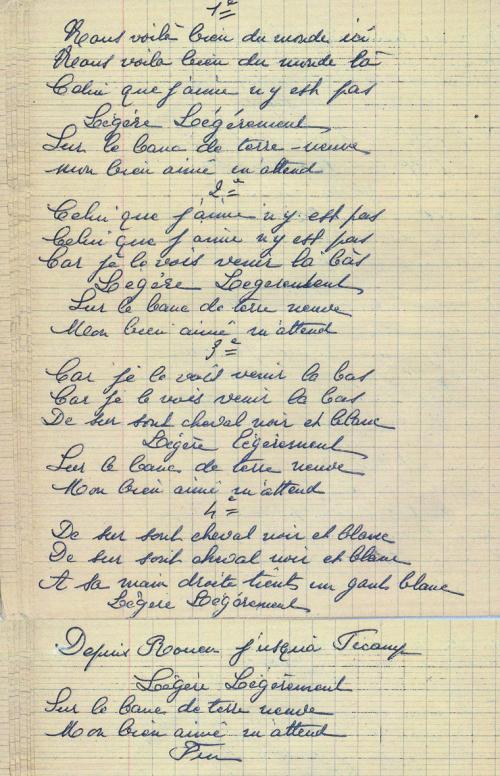 1e
Nous voilà bien du monde ici
Nous voila bien du monde là
Celui que j'aime n'y est pas
Légère Légérement
Sur le banc de terre-neuve
Mon bien aimé m'attend
2e
Celui que j'aime n'y est pas
Celui que j'aime n'y est pas
Car je le vois venir là bàs
Légère Legerement
Sur le banc de terre neuve
Mon bien aimé m'attend
3e
Car je le vois venir la bas
Car je le vois venir la bas
De sur sont cheval noir et blanc
Légère légèrement
Sur le banc de terre neuve
Mon bien aimé m'attend
4e
De sur sont cheval noir et blanc
De sur sont cheval noir et blanc
A sa main droite tients un gants blanc
Légere Légérement
Depuis Rouen j'usquà Fécamp
Légère Légérement
Sur le banc de terre neuve
Mon bien aimé m'attend
Fin